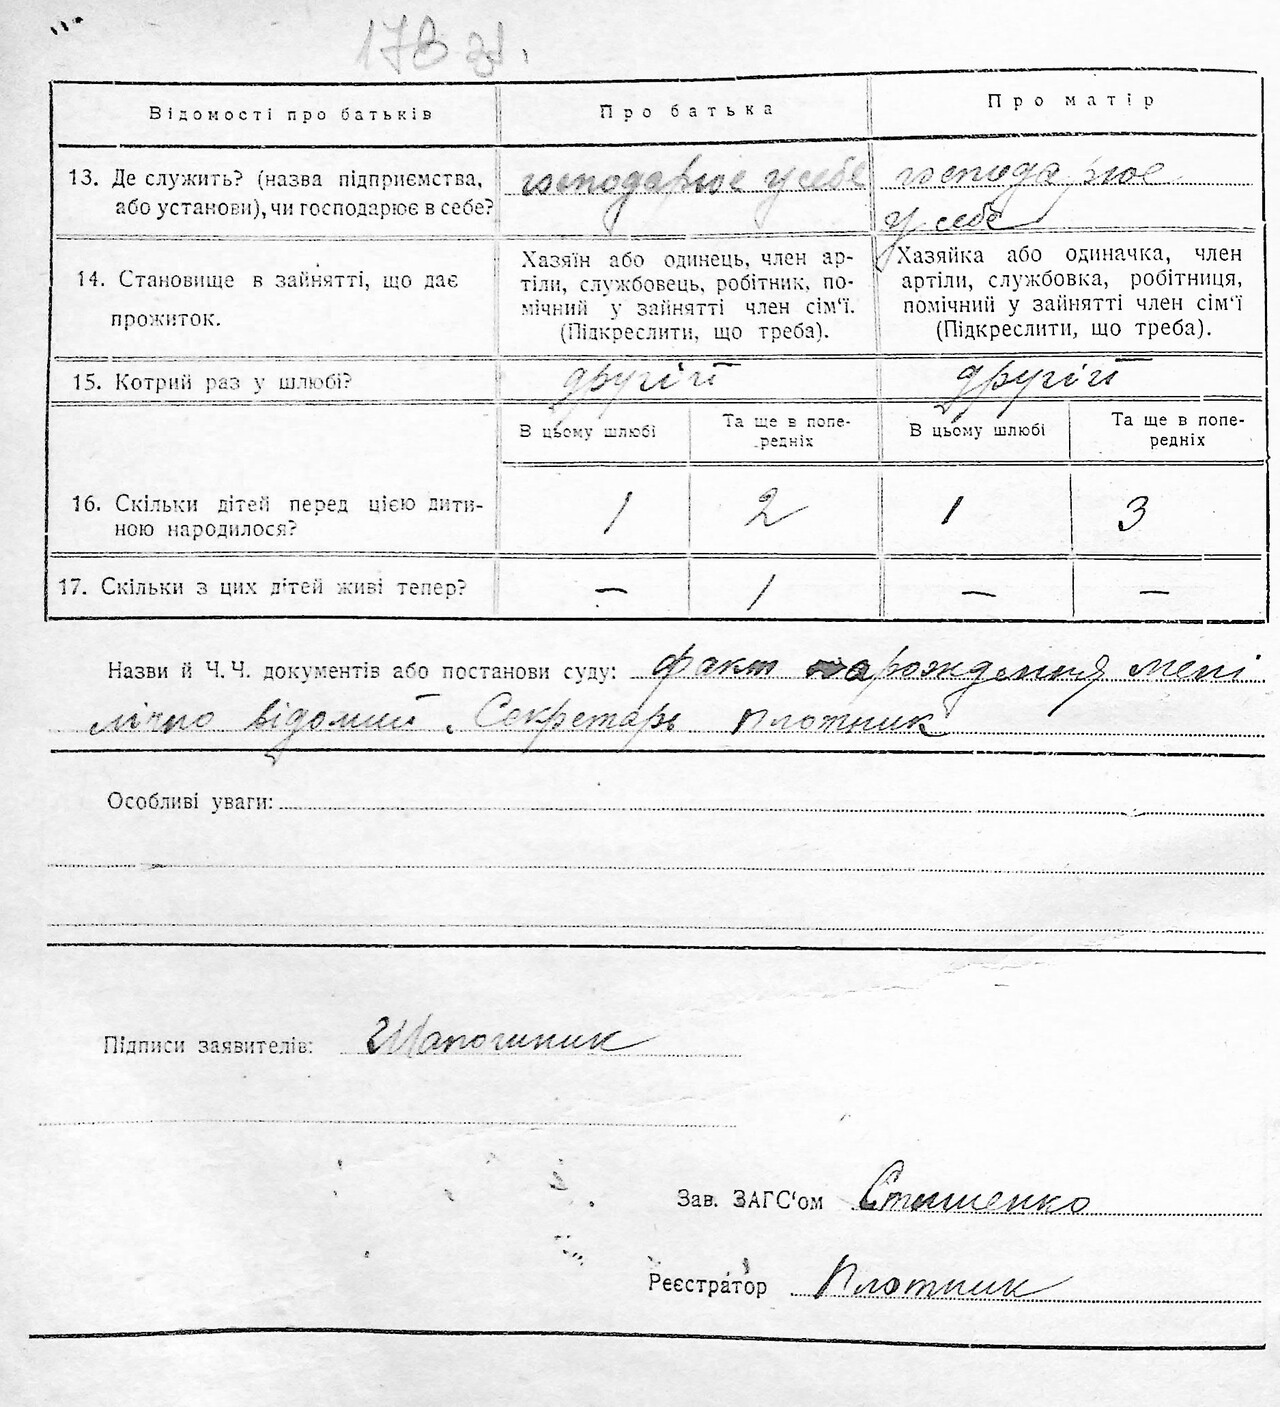 178 зв.
Відомості про батьків
Про батька
Про матір
13. Де служить? (назва підприємства, або установи), чи господарює в себе?
господарює у себе
господарює
у себе
14. Становище в зайнятті, що дає прожиток.
Хазяїн або одинець, член ар-
тіли, службовець, робітник, по-
мічний у зайнятті член сім'ї.
(Підкреслити, що треба).
Хазяйка або одиначка, член
артіли, службовка, робітниця,
помічний у зайнятті член сім'ї
(Підкреслити, що треба).
15. Котрий раз у шлюбі?
другій
другій
В цьому шлюбі
Та ще в попе-
редніх
В цьому шлюбі
Та ще в попе-
редніх
16. Скільки дітей перед цією дити-
ною народилося?
1
2
1
3
17. Скільки з цих дітей живі тепер?
—
1
—
—
Назви й Ч. Ч. документів або постанови суду: факт нарождення мені
лічно відомий. Секретарь Плотник
Особливі уваги:
Підписи заявителів: Шапошник
Зав. ЗАГС'ом Стешенко
Реєстратор Плотник